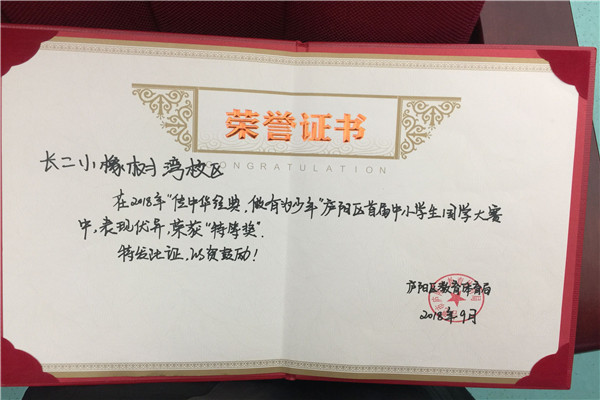 荣誉证书
CONGRATULATION
长二小橡树湾校区
在2018年“传中华经典,做有为少年”庐阳区首届中小学生国学大赛
中,表现优异,荣获“特等奖”.
特发此证,以资鼓励!
庐阳区教育体育局
2018年9月